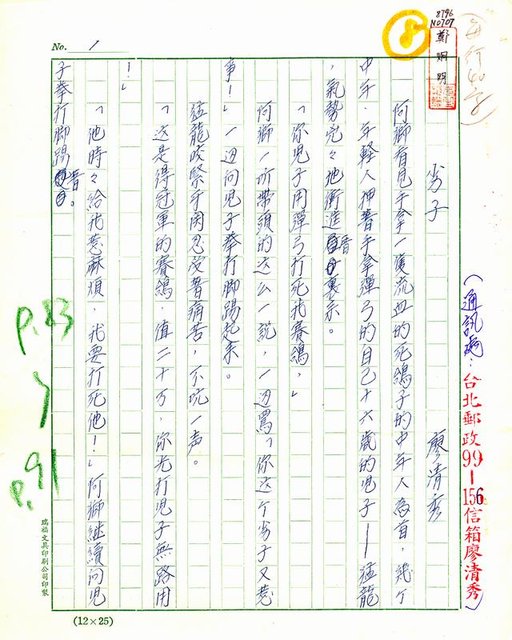 8796
N0707
鄭炯明
每行40字
8
No. 1
(通訊處：台北郵政99-156信箱廖清秀)
劣子
廖清秀
何獅看見手拿一隻流血的死鴿子的中年人為首，幾个
中年、年輕人押著手拿彈弓的自己十六歲的兒子——猛龍
，氣勢兇々地衝進來。
「你兒子用彈弓打死我賽鴿，」
何獅一听帶頭的这么一說，一边罵「你这个劣子又惹
事！」一边向兒子拳打脚踢起來。
猛龍咬緊牙関忍受着痛苦，不吭一声。
「这是得冠軍的賽鴿，值二十万，你光打兒子無路用
！」
「他時々給我惹麻煩，我要打死他！」何獅繼續向兒
子拳打脚踢着。
p.83
p.91
瑞福文具印刷公司印製
(12×25)